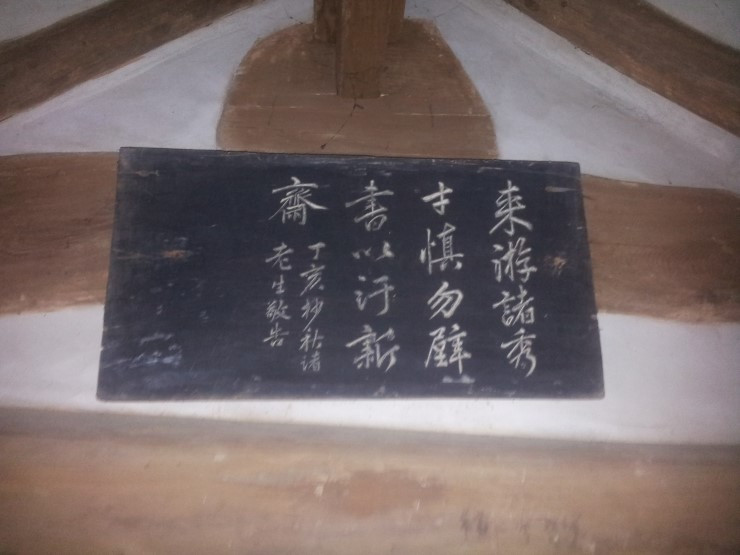 来游諸秀
才慎勿壁
書以汙新
齋
丁亥杪秋諸
老生敬告